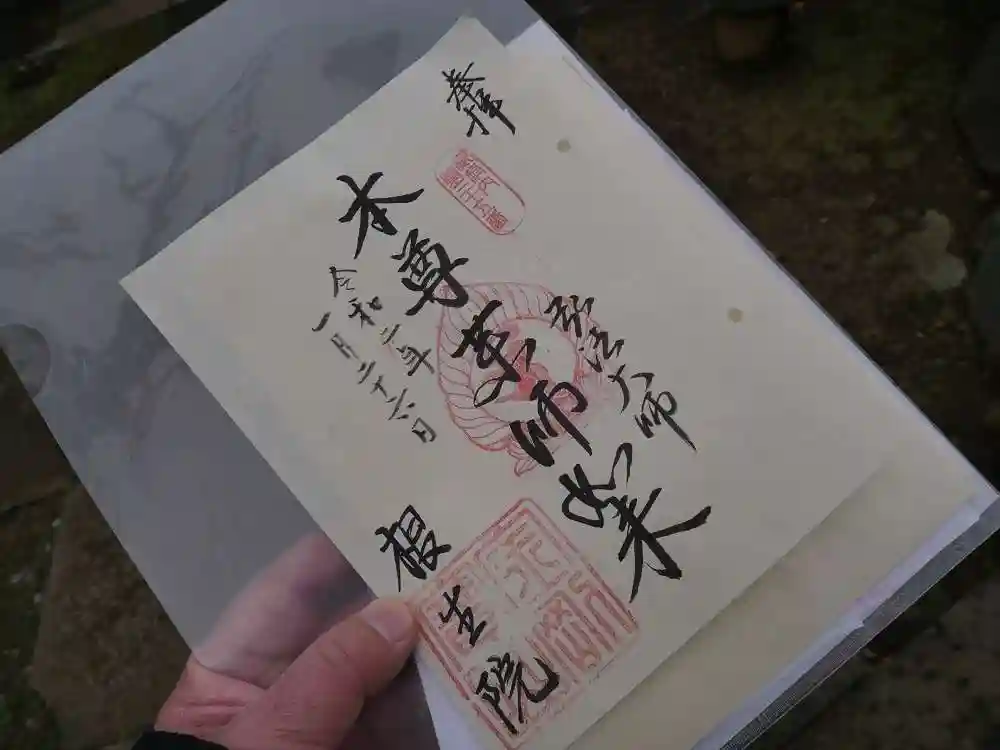 奉拝
弘法大師
本尊薬師如来
令和二年
一月二十六日
根生院